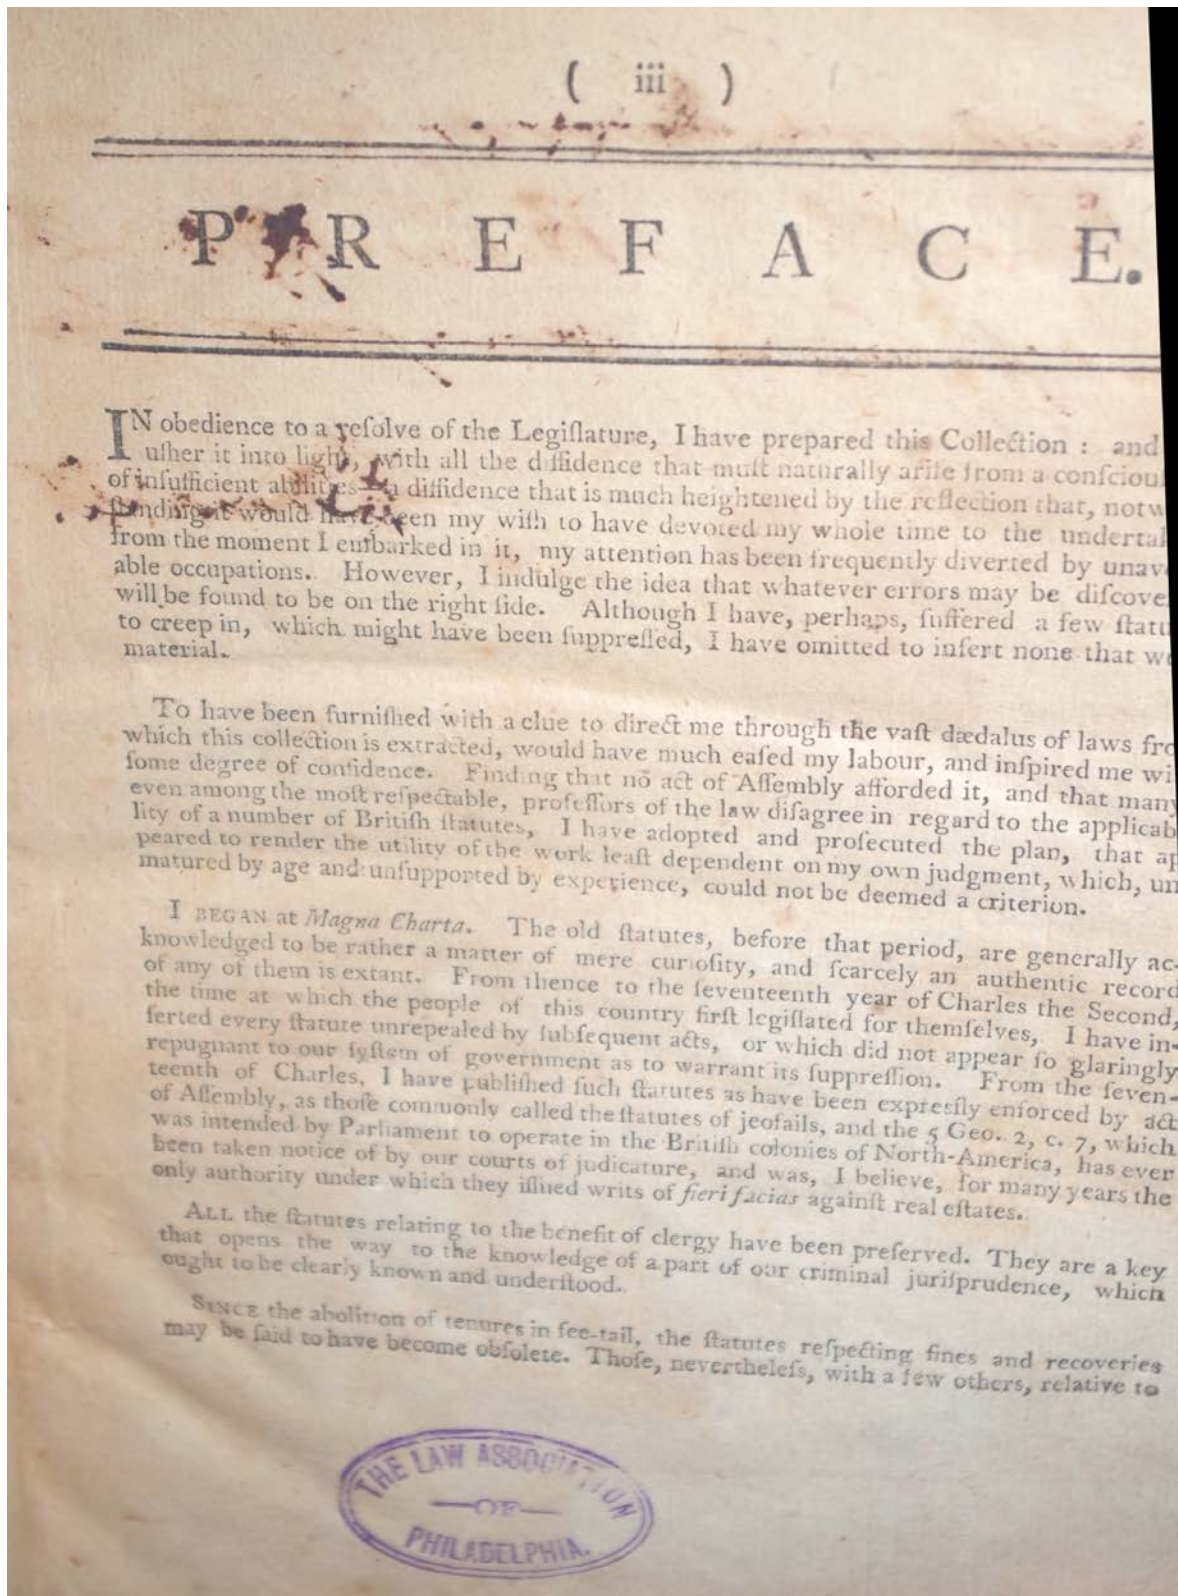 ( iii )
PREFACE.
IN obedience to a reſolve of the Legiſlature, I have prepared this Collection : and
uſher it into light, with all the diffidence that muſt naturally ariſe from a conſciouſ
of inſufficient abilities—a diffidence that is much heightened by the reflection that, notw
ſtanding it would have been my wiſh to have devoted my whole time to the undertak
from the moment I embarked in it, my attention has been frequently diverted by unav
able occupations. However, I indulge the idea that whatever errors may be diſcove
will be found to be on the right ſide. Although I have, perhaps, ſuffered a few ſtatu
to creep in, which might have been ſuppreſſed, I have omitted to inſert none that we
material.
To have been furniſhed with a clue to direct me through the vaſt dædalus of laws fro
which this collection is extracted, would have much eaſed my labour, and inſpired me wi
ſome degree of confidence. Finding that no act of Aſſembly afforded it, and that many
even among the moſt reſpectable, profeſſors of the law diſagree in regard to the applicab
lity of a number of Britiſh ſtatutes, I have adopted and proſecuted the plan, that ap
peared to render the utility of the work leaſt dependent on my own judgment, which, un
matured by age and unſupported by experience, could not be deemed a criterion.
I BEGAN at Magna Charta. The old ſtatutes, before that period, are generally ac-
knowledged to be rather a matter of mere curioſity, and ſcarcely an authentic record
of any of them is extant. From thence to the ſeventeenth year of Charles the Second,
the time at which the people of this country firſt legiſlated for themſelves, I have in-
ſerted every ſtatute unrepealed by ſubſequent acts, or which did not appear ſo glaringly
repugnant to our ſyſtem of government as to warrant its ſuppreſſion. From the ſeven-
teenth of Charles, I have publiſhed ſuch ſtatutes as have been expreſſly enforced by act
of Aſſembly, as thoſe commonly called the ſtatutes of jeofails, and the 5 Geo. 2, c. 7, which
was intended by Parliament to operate in the Britiſh colonies of North-America, has ever
been taken notice of by our courts of judicature, and was, I believe, for many years the
only authority under which they iſſued writs of fieri facias againſt real eſtates.
ALL the ſtatutes relating to the benefit of clergy have been preſerved. They are a key
that opens the way to the knowledge of a part of our criminal juriſprudence, which
ought to be clearly known and underſtood.
SINCE the abolition of tenures in fee-tail, the ſtatutes reſpecting fines and recoveries
may be ſaid to have become obſolete. Thoſe, nevertheleſs, with a few others, relative to
THE LAW ASSOCIATION
OF
PHILADELPHIA.